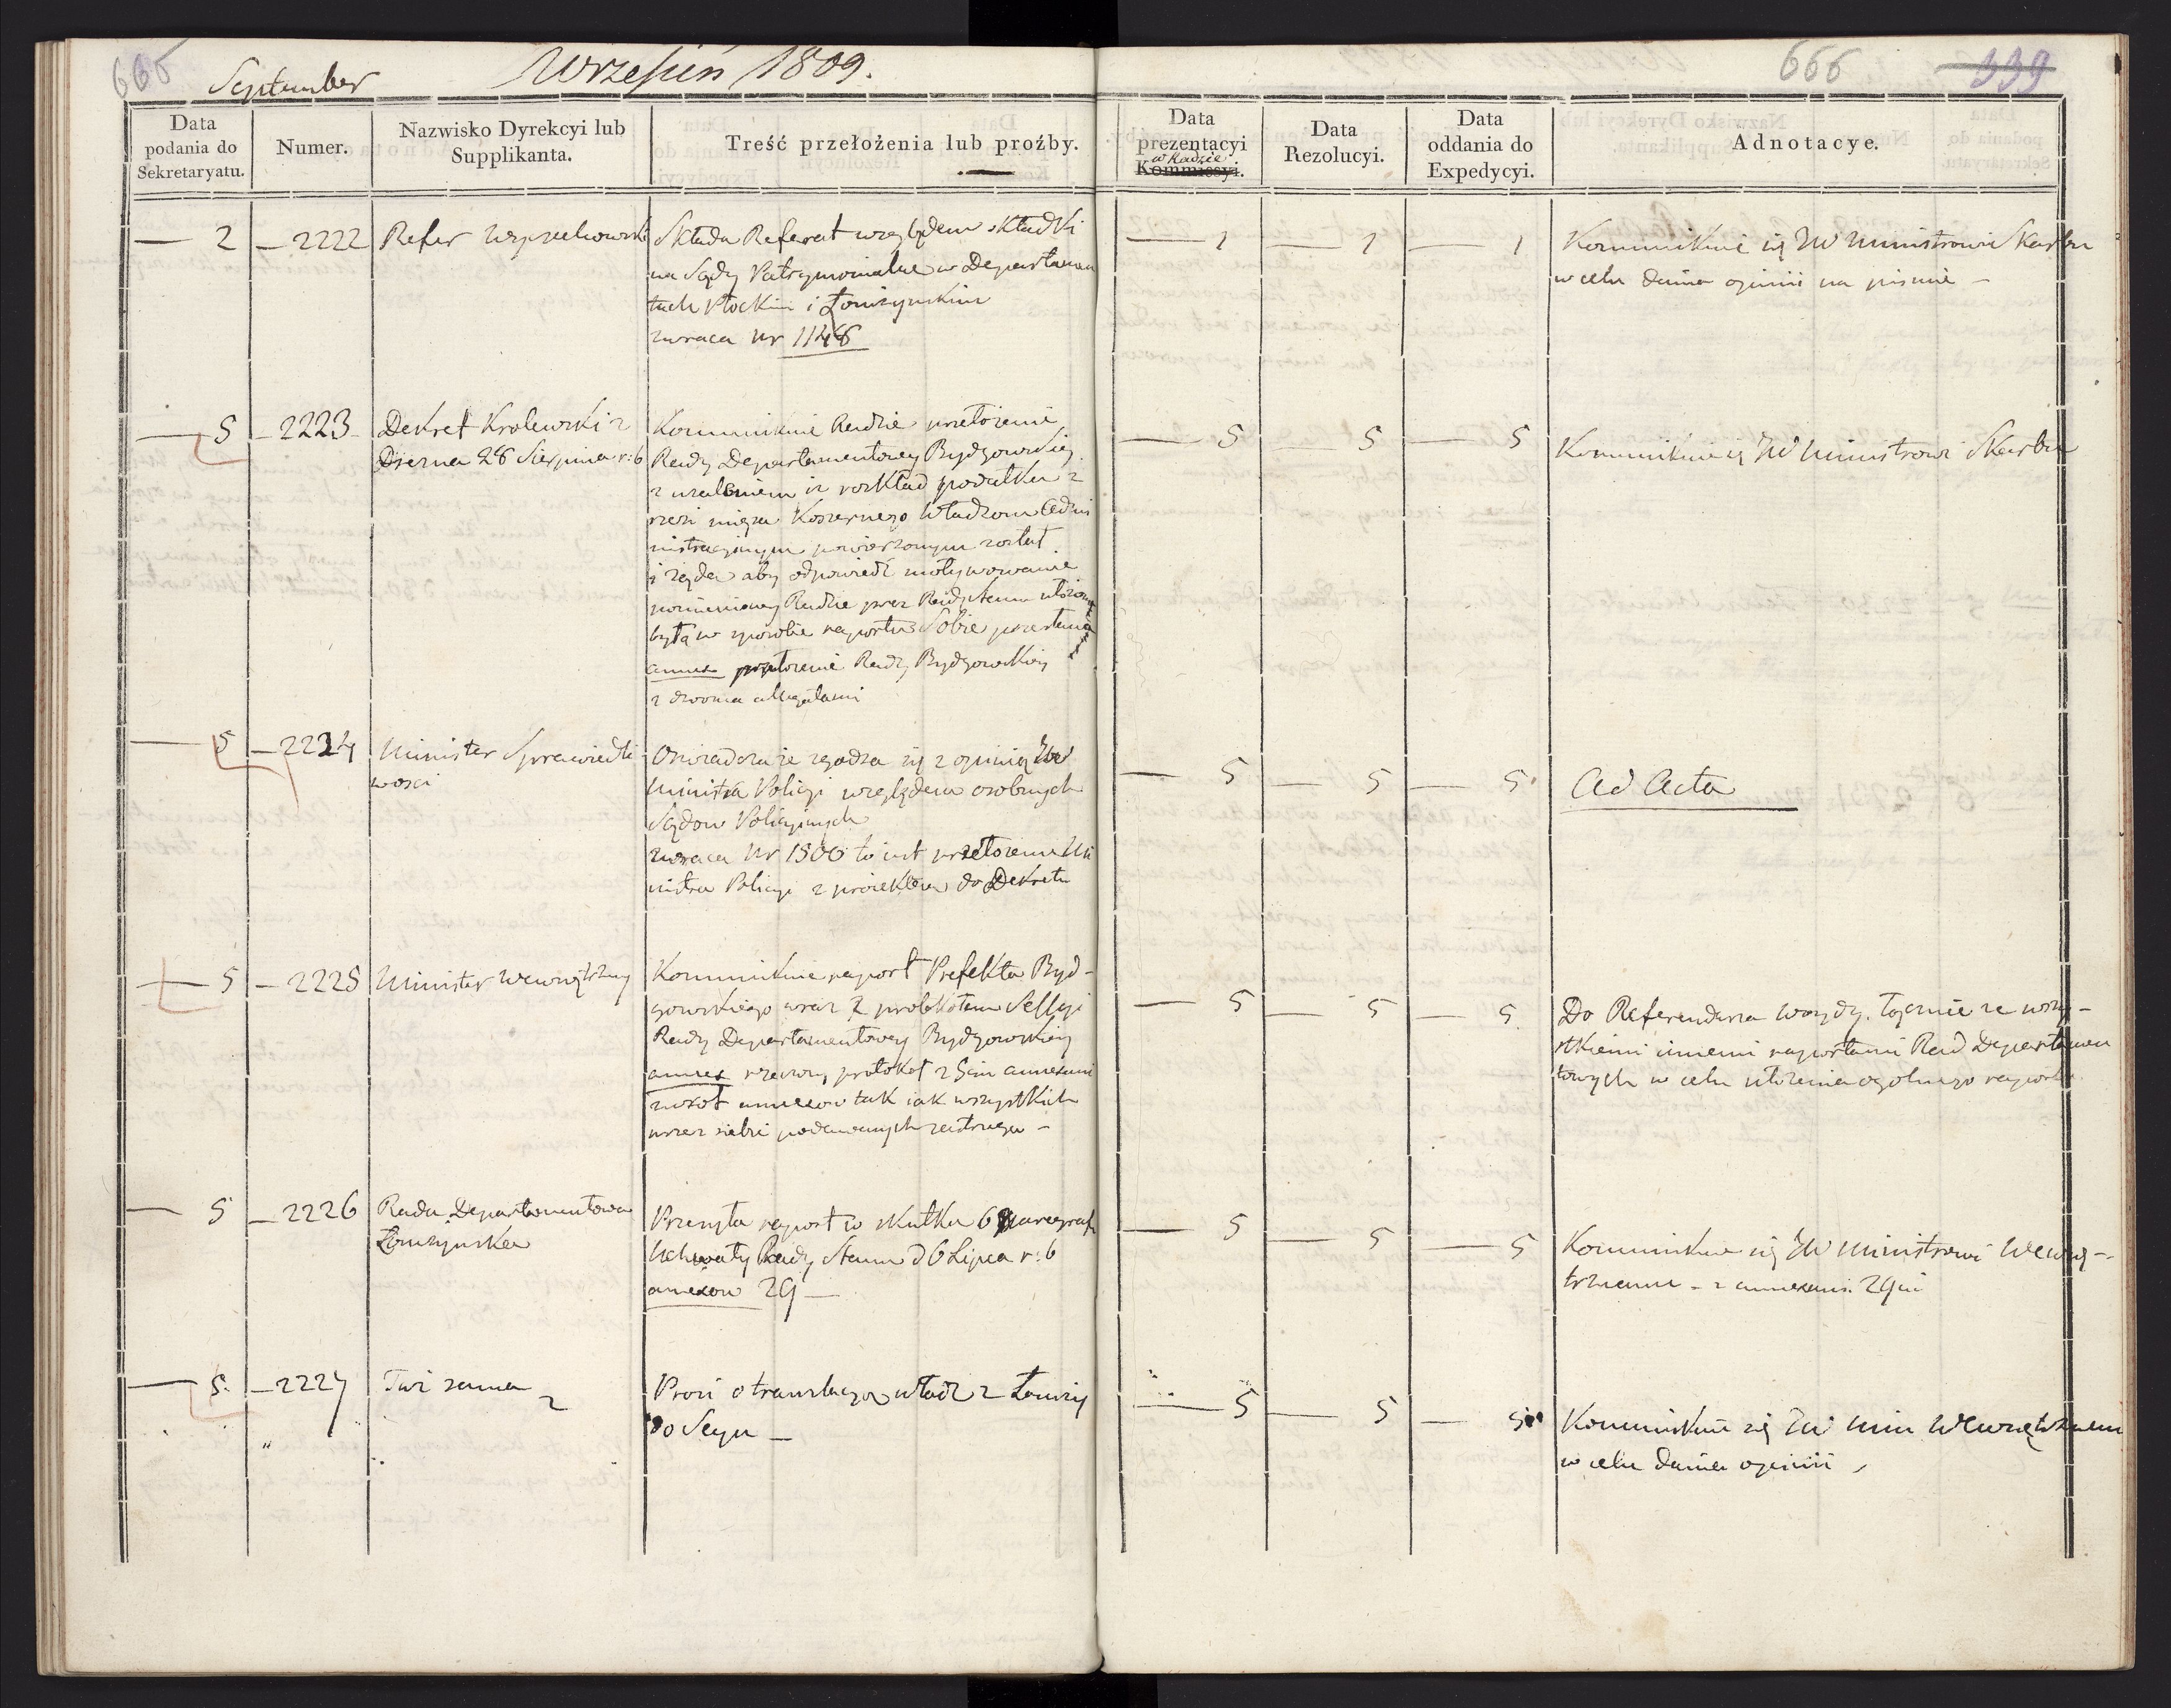 666
September
Wrzesień 1809.
666
339
Data
podania do
Sekretaryatu.
Numer.
Nazwisko Dyrekcyi lub
Supplikanta.
Treść przełożenia lub proźby.
Data
prezentacyi
w Radzie
Kommissyi.
Data
Rezolucyi.
Data
oddania do
Expedycyi.
Adnotacye.
— 2 — 2222
Refer
Składa Referat względem składki
na Sądy Patrymonialne w Departamen
tach Płockim i Łomżynskim
zwraca Nr 1148
— 1 — 1 — 1
Kommunikuie się JW Ministrowi Skarbu
w celu dania opinii na pismie —
— 5 — 2223 —
Dekret Krolewski z
28 Sierpnia r: b
Kommunikuie Radzie przełożenie
Rady Departamentowey Bydgowskiey
z użaleniem iż rozkład podatku z
rzezi mięsa Koszernego Władzom Admi
nistracyinym powierzonym został
i żąda aby odpowiedź motywowanie
pomienioney Radzie przez Radę Stanu ułożona
była w sposobie raportu Sobie przesłana
annex przełożenie Rady Bydgowskiey
z dwoma allegatami
— 5 — 5 — 5
Kommunikuie się JW Ministrowi Skarbu
— 5 — 2224
Minister Sprawiedli
wosci
Oswiadcza że zgadza się z opinią JW
Ministra Policyi względem osobnych
Sądow Policyinych
zwraca Nr 1500 to iest przełożenie Mi
nistra Policyi z proiektem do Dekretu
— 5 — 5 — 5
Ad Acta
— 5 — 2225
Minister Wewnętrzny
Kommunikuie raport Prefekta Byd-
gowskiego wraz z protokołem Sessyi
Rady Departamentowey Bydgowskiey
annex rzeczony protokoł z 5ciu annexami
zwrot annexow tak iak wszystkich
przez siebie podawanych zastrzega —
— 5 — 5 — 5
Do Referendarza Woydy. łącznie ze wszy-
stkiemi innemi raportami Rad Departamen
towych w celu ułożenia ogolnego raportu
— 5 — 2226
Rada Departamentowa
Łomżynska
Przesyła raport w skutku 6 paragrafu
Uchwały Rady Stanu d 6 Lipca r: b
annexow 29 —
— 5 — 5 — 5
Kommunikuie się JW Ministrowi Wewnę-
trznemu — z annexami 29ciu
— 5. — 2227
Taż sama
Prosi o translacyą władz z Łomży
do Seyn —
— 5 — 5 — 5
Kommunikuie się JW Min Wewnętrznem
w celu dania opinii